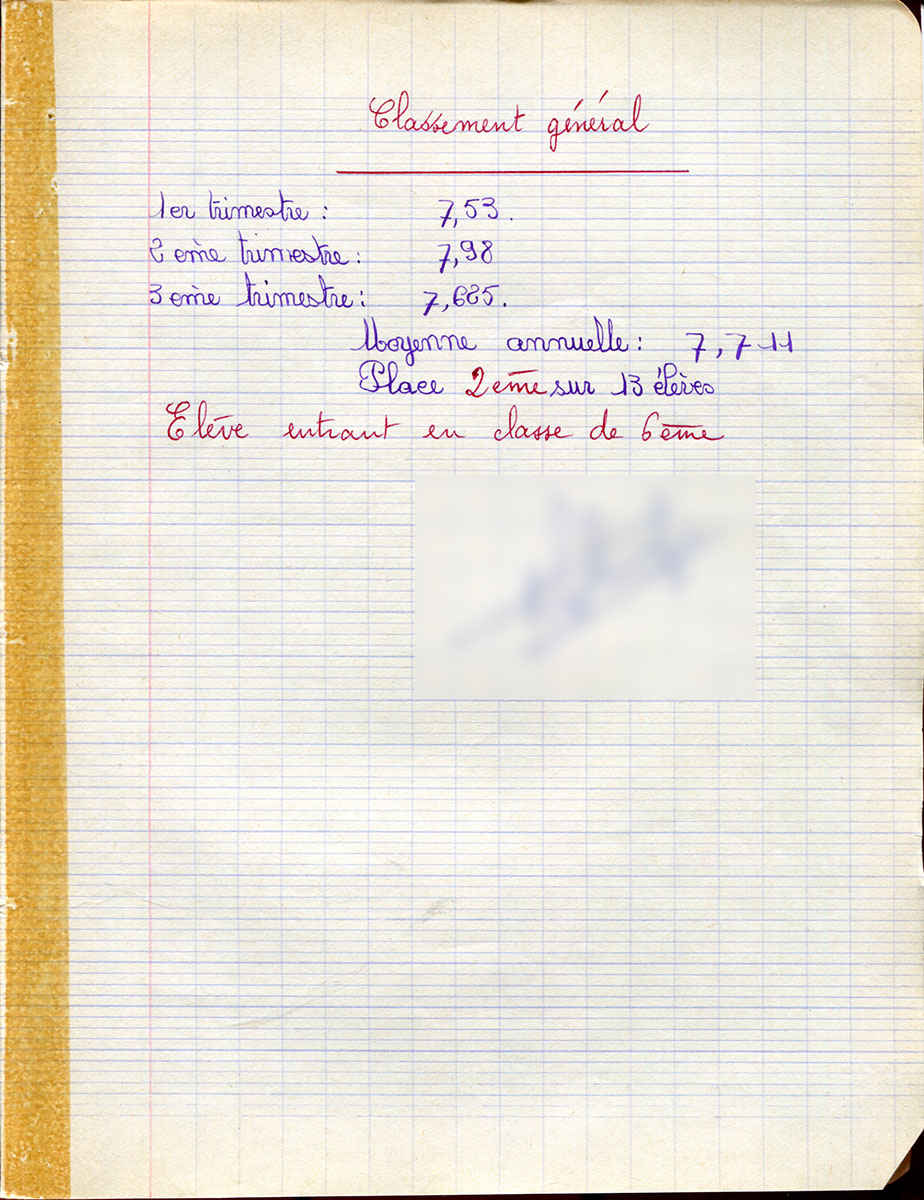 Classement général
1er trimestre : 7,53.
2 ème trimestre : 7,98
3 ème trimestre : 7,625.
Moyenne annuelle : 7,711
Place 2ème sur 13 élèves
Elève entrant en classe de 6ème